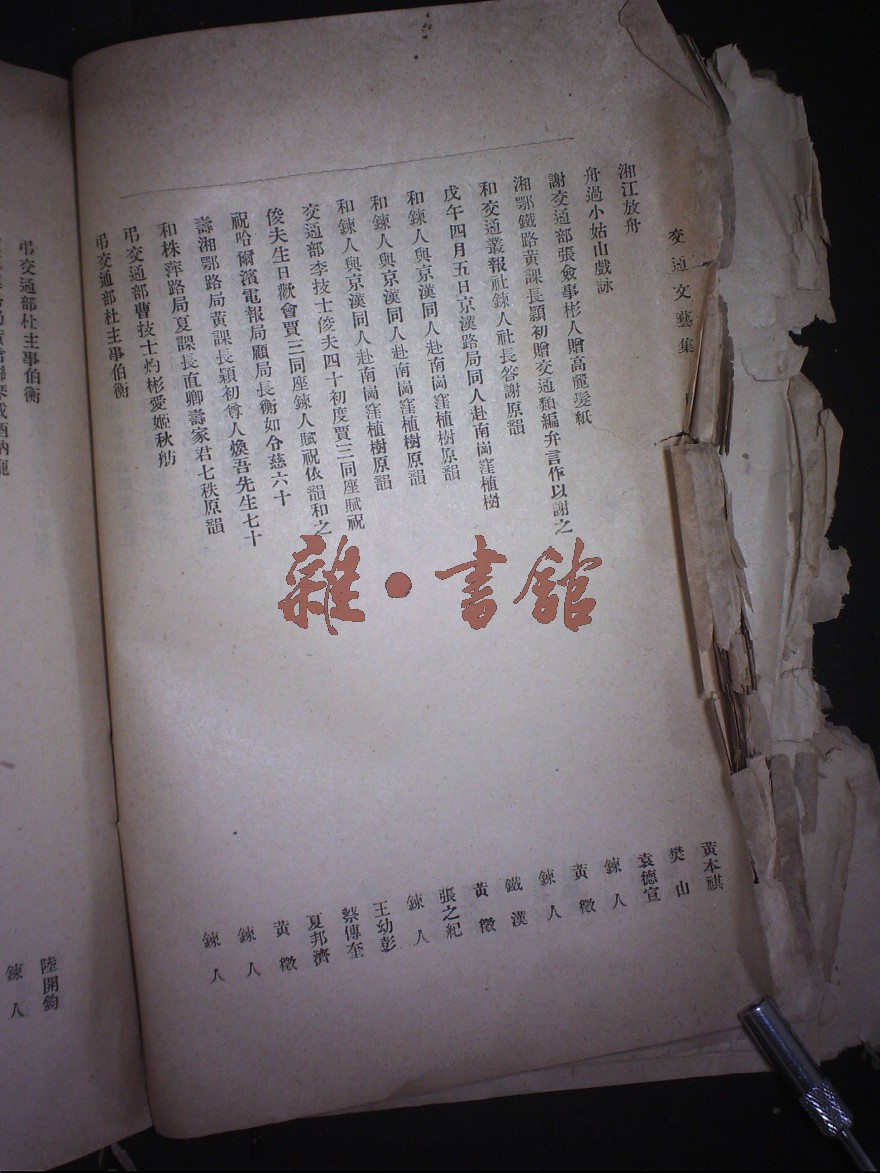 交通文藝集
湘江放舟 黃本祺
舟過小姑山戲詠 樊山
謝交通部張僉事彬人贈高麗髮紙 袁德宣
湘鄂鐵路黃課長穎初贈交通類編弁言作以謝之 鍊人
和交通叢報社鍊人社長答謝原韻 黃徵
戊午四月五日京漢路局同人赴南崗窪植樹 鍊人
和鍊人與京漢同人赴南崗窪植樹原韻 鐵漢
和鍊人與京漢同人赴南崗窪植樹原韻 黃徵
和鍊人與京漢同人赴南崗窪植樹原韻 張之紀
交通部李技士俊夫四十初度賈三同座賦祝 鍊人
俊夫生日歡會賈三同座鍊人賦祝依韻和之 王幼彭
祝哈爾濱電報局顧局長衡如令慈六十 蔡傳奎
壽湘鄂路局黃課長穎初尊人煥吾先生七十 夏邦濟
和株萍路局夏課長直卿壽家君七秩原韻 黃徵
弔交通部曹技士灼彬愛姬秋舫 鍊人
弔交通部杜主事伯衡 鍊人
弔交通部杜主事伯衡 陸開鈞
鍊人
雜·書館